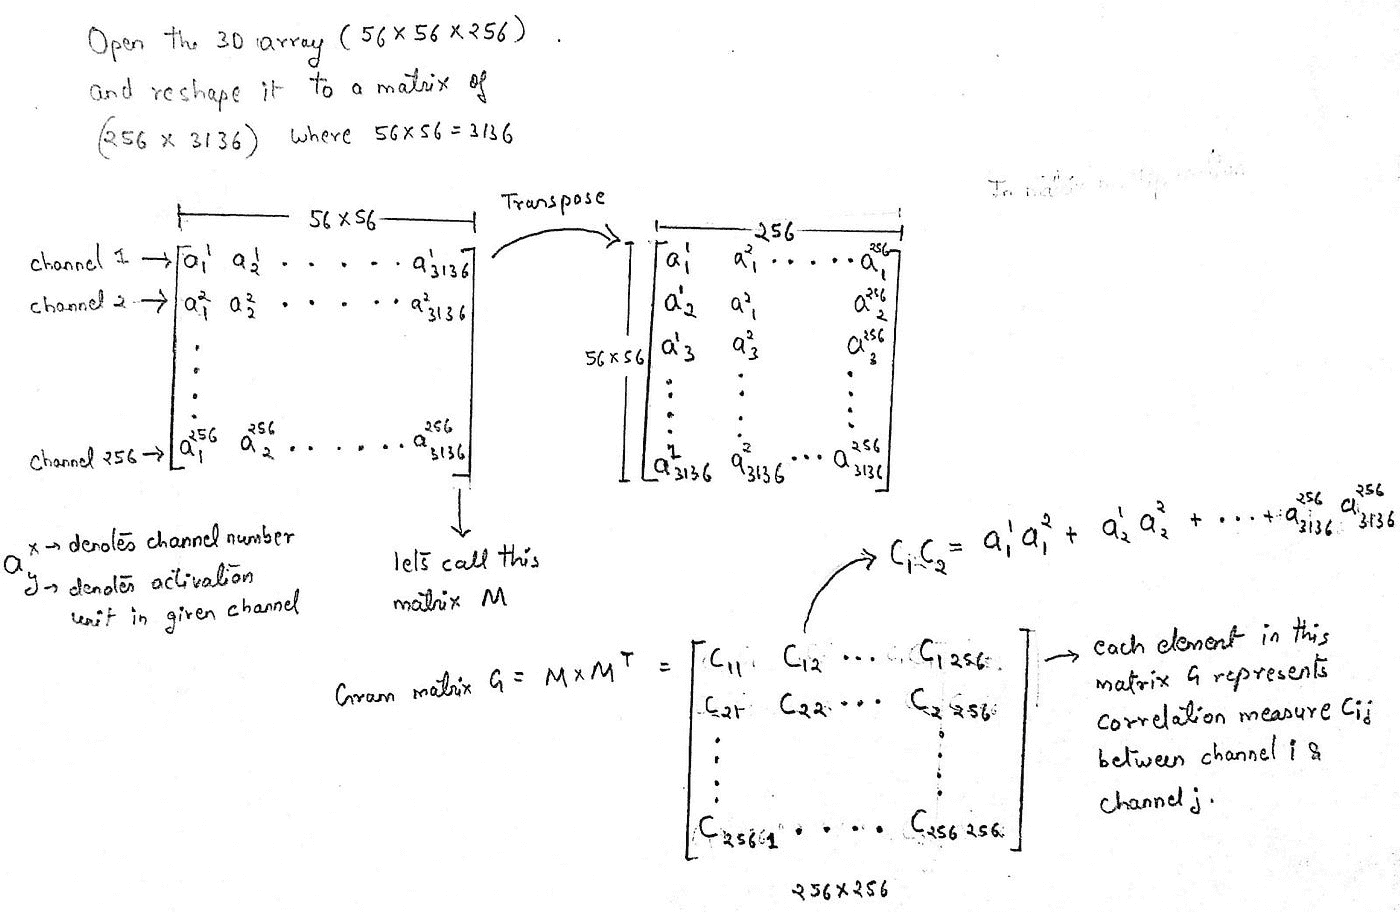 Open the 3D array (56×56×256).
and reshape it to a matrix of
(256 × 3136) where 56×56=3136
56×56
Transpose
256
channel 1 → a₁¹ a₂¹ . . . . . . a¹₃₁₃₆
channel 2 → a₁² a₂² . . . . . . a²₃₁₃₆
channel 256 → a₁²⁵⁶ a₂²⁵⁶ . . . . . . a²⁵⁶₃₁₃₆
56×56
a₁¹ a₁² . . . . . a₁²⁵⁶
a₂¹ a₁² a₂²⁵⁶
a₃¹ a₃² a₃²⁵⁶
a¹₃₁₃₆ a²₃₁₃₆ ... a²⁵⁶₃₁₃₆
a
x → denotes channel number
y → denotes activation
unit in given channel
lets call this
matrix M
C₁C₂ = a₁¹ a₁² + a₂¹ a₂² + ... + a²⁵⁶₃₁₃₆ a²⁵⁶₃₁₃₆
Gram matrix G = M×Mᵀ =
C₁₁ C₁₂ ... C₁ ₂₅₆
C₂₁ C₂₂ ... C₂ ₂₅₆
C₂₅₆ ₁ . . . . C₂₅₆ ₂₅₆
256×256
→ each element in this
matrix G represents
correlation measure Cij
between channel i &
channel j.